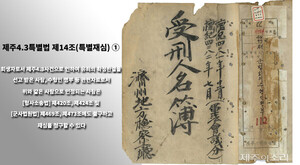 제주4.3특별법 제14조(특별재심) ①
희생자로서 제주4.3사건으로 인하여 유죄의 확정판결을
선고 받은 사람, 수형인 명부 등 관련자료로서
위와 같은 사람으로 인정되는 사람은
「형사소송법」 제420조, 제424조 및
「군사법원법」 제469조, 제473조에도 불구하고
재심을 청구할 수 있다
受刑人名簿
濟州地方檢察廳
제주의소리